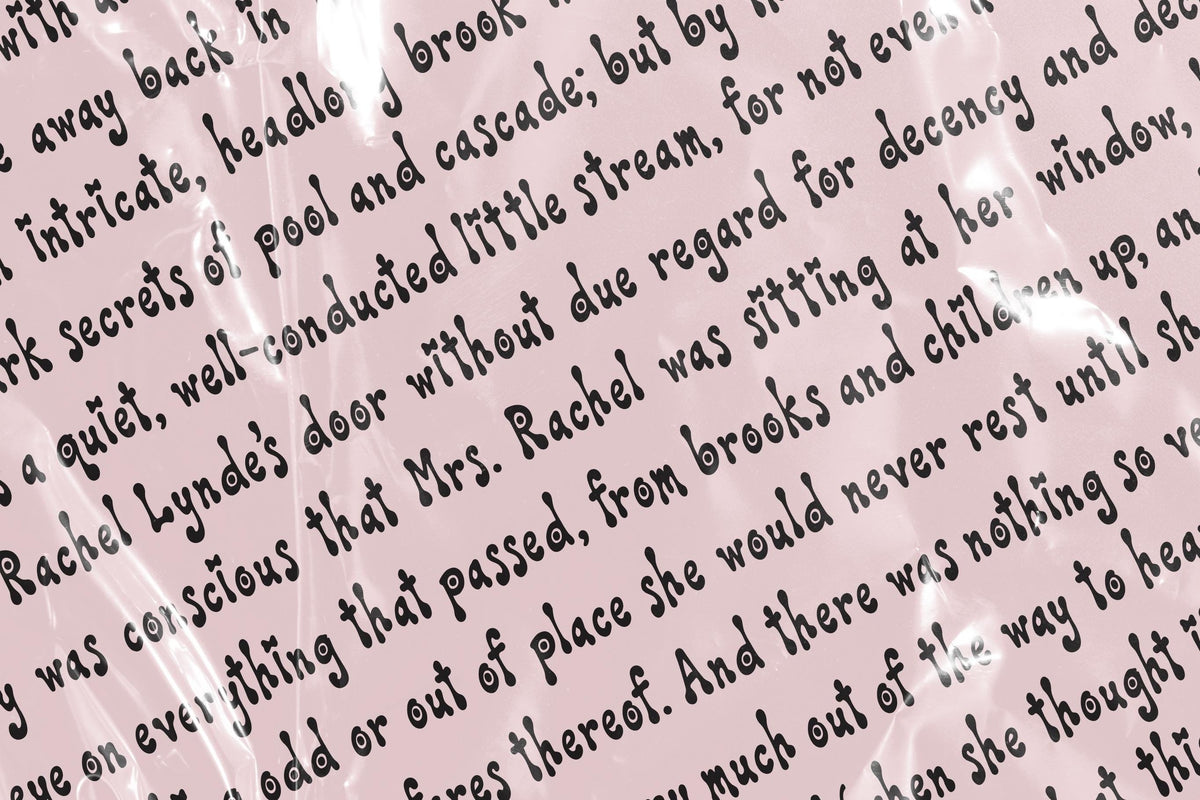 with
away back in
intricate, headlong brook
secrets of pool and cascade; but by
a quiet, well-conducted little stream, for not even
Rachel Lynde's door without due regard for decency and
was conscious that Mrs. Rachel was sitting at her window,
eye on everything that passed, from brooks and children up,
odd or out of place she would never rest until
thereof. And there was nothing so
much out of the way to
she thought